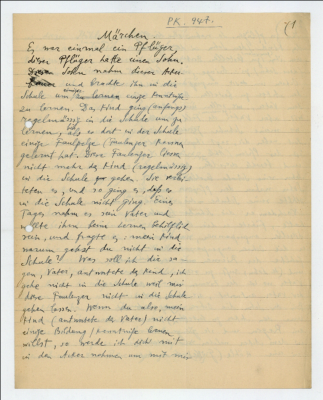 PK. 94t.
71
Märchen
Es war einmal ein Pflüger,
dieser Pflüger hatte einen Sohn.
Diesen Sohn nahm dieser
und brachte ihn in die
Schule um einige Kenntnisse
zu lernen. Das Kind ging (anfangs)
regelmässig in die Schule um zu
lernen, als es dort in der Schule
einige Faulpelze (Faulenzer) kennen
gelernt hat. Diese Faulenzer
nicht mehr das Kind (regelmässig)
in die Schule gehen. Sie
teten es, und so ging es, daß es
in die Schule nicht ging. Eines
Tages nahm es sein Vater und
wollte ihm beim Lernen behilflich
sein, und fragte es, mein Kind
warum gehst du nicht in die
Schule? Was soll ich dir sa-
gen, Vater, antwortete das Kind, ich
gehe nicht in die Schule weil mich
diese Faulenzer nicht in die Schule
gehen lassen. Wenn du also, mein
Kind (antwortete der Vater) nicht
einige Bildung (Kenntnisse) lernen
willst, so werde ich dich mit
in den Acker nehmen um mit mir